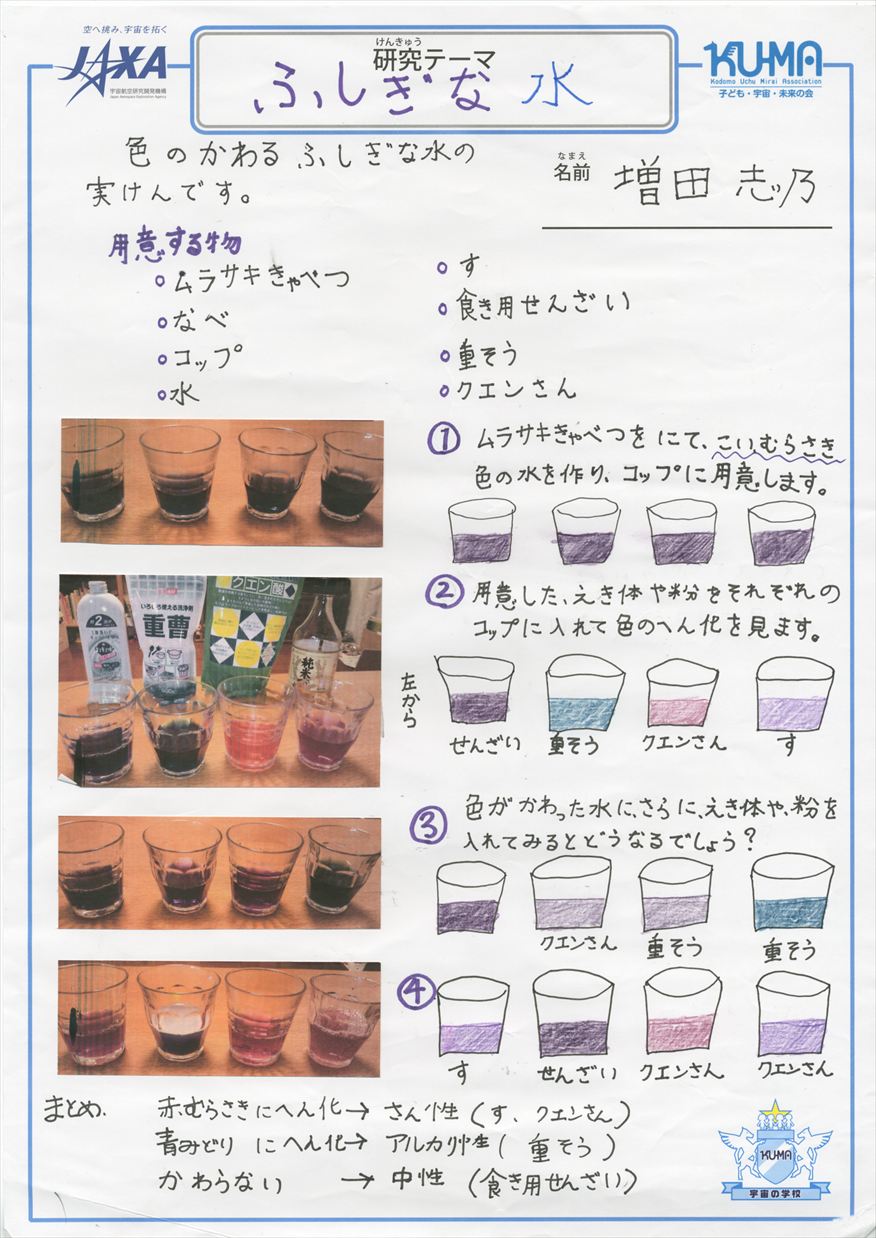 空へ挑み、宇宙を拓く
JAXA
宇宙航空研究開発機構
Japan Aerospace Exploration Agency
けんきゅう
研究テーマ
ふしぎな 水
KU-MA
Kodomo Uchu Mirai Association
子ども・宇宙・未来の会
色のかわる ふしぎな水の
実けんです。
なまえ
名前 増田 志乃
用意する物
ムラサキきゃべつ
なべ
コップ
水
す
食き用せんざい
重そう
クエンさん
① ムラサキきゃべつをにて、こいむらさき
色の水を作り、コップに用意します。
② 用意した、えき体や粉をそれぞれの
コップに入れて色のへん化を見ます。
いろいろ使える洗浄剤
重曹
クエン酸
純米
左から
せんざい 重そう クエンさん す
③ 色がかわった水に、さらに、えき体や、粉を
入れてみるとどうなるでしょう?
クエンさん 重そう 重そう
④
す せんざい クエンさん クエンさん
まとめ.
赤むらさきにへん化→ さん性 (す、クエンさん)
青みどり にへん化→ アルカリ性 ( 重そう )
かわらない → 中性 (食き用せんざい)
KU-MA
宇宙の学校